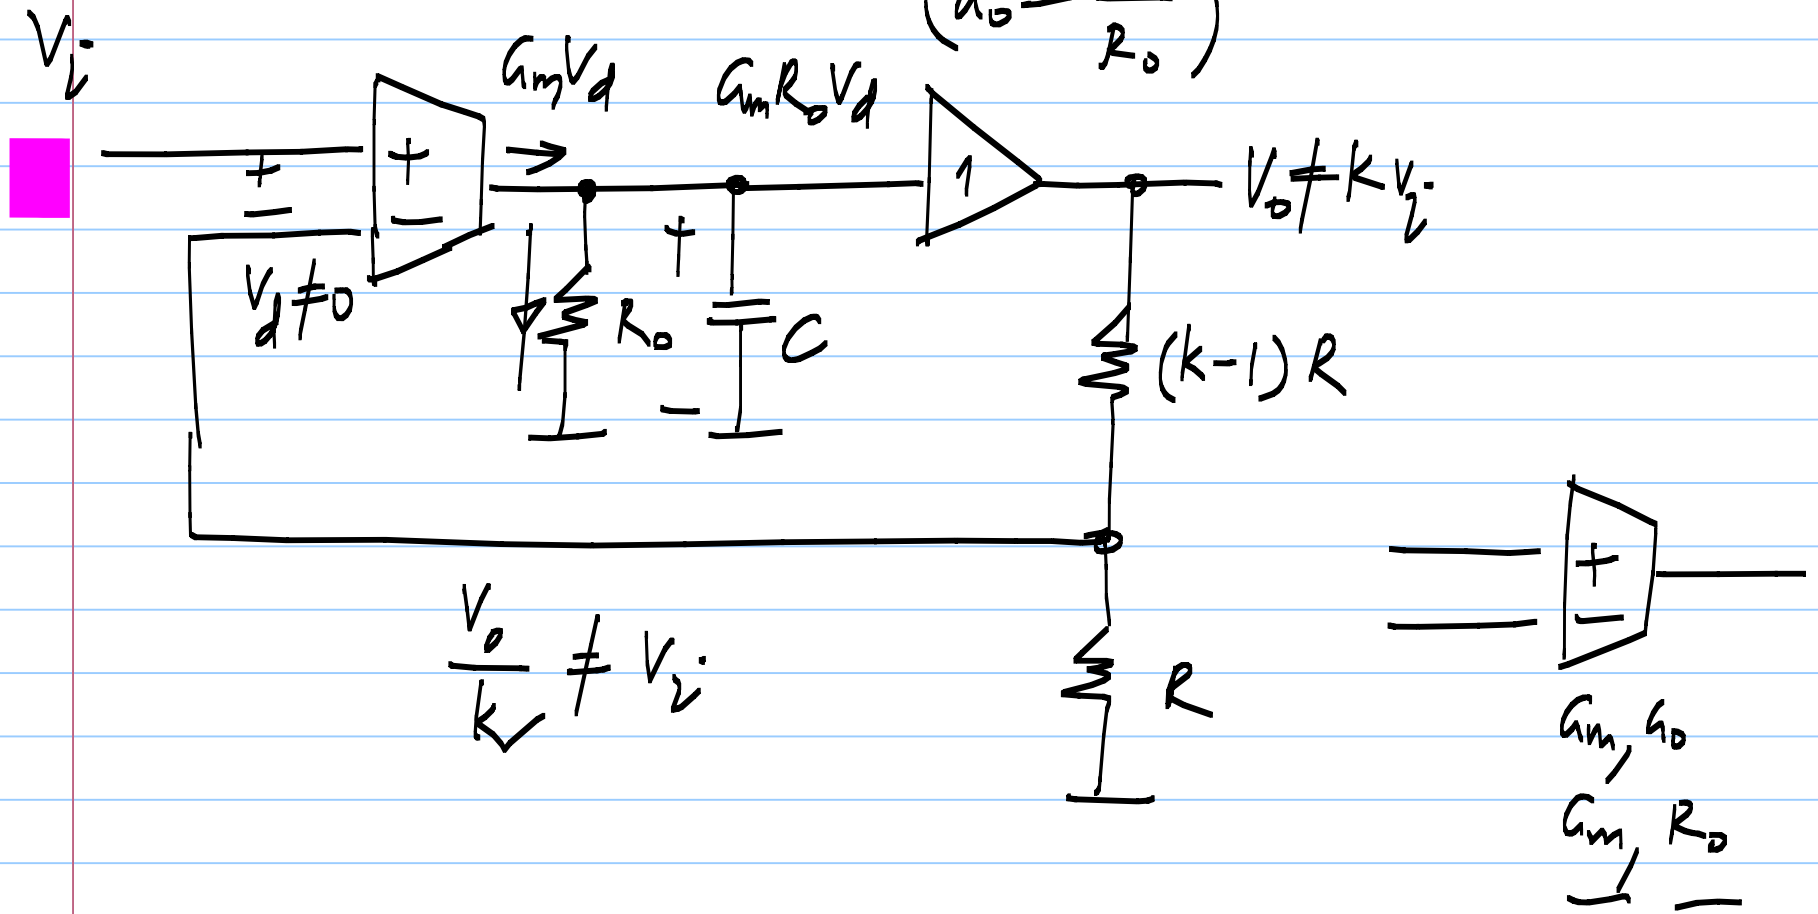 Vi
(G₀ — R₀)
GmVd
GmR₀Vd
+
−
+
−
1
V₀ ≠ K Vi
Vd ≠ 0
+
−
R₀
C
(k−1) R
V₀/k ≠ Vi
R
+
−
Gm, G₀
Gm, R₀